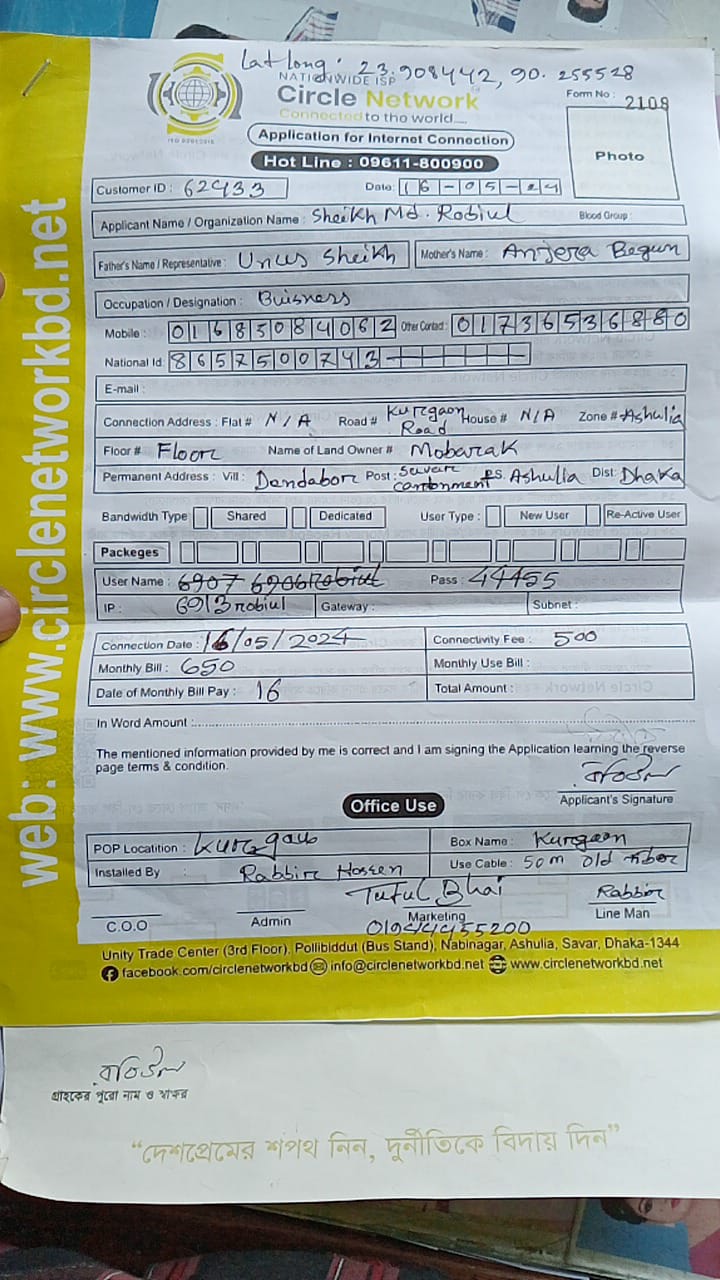 Lat long: 23.908442, 90.255528
NATIONWIDE ISP
Circle Network
Connected to the world....
ISO 9001:2015
Form No : 2108
Application for Internet Connection
Photo
Hot Line : 09611-800900
Customer ID : 62433 Date: 16-05-24
Applicant Name / Organization Name : Sheikh Md. Robiul Blood Group :
Father's Name / Representative : Unus Sheikh Mother's Name : Anjera Begun
Occupation / Designation : Buisness
Mobile : 01685084062 Other Contact : 01736536880
National Id: 8657500743
E-mail :
Connection Address : Flat # N/A Road # Kurgaon Road House # N/A Zone # Ashulia
Floor # Floor Name of Land Owner # Mobarak
Permanent Address : Vill : Dendabor Post : Savar cantonment P.S. Ashulia Dist: Dhaka
Bandwidth Type Shared Dedicated User Type : New User Re-Active User
Packeges
User Name : 6907 6906Robiul Pass : 44455
IP : 6913robiul Gateway : Subnet :
Connection Date : 16/05/2024 Connectivity Fee : 500
Monthly Bill : 650 Monthly Use Bill :
Date of Monthly Bill Pay : 16 Total Amount :
In Word Amount :
The mentioned information provided by me is correct and I am signing the Application learning the reverse
page terms & condition.
রবিউল
Applicant's Signature
Office Use
POP Locatition : Kurgaon Box Name : Kurgaon
Installed By : Rabbir Hossen Use Cable : 50m old
Tuful Bhai Rabbir
C.O.O Admin Marketing Line Man
01944455200
Unity Trade Center (3rd Floor), Pollibiddut (Bus Stand), Nabinagar, Ashulia, Savar, Dhaka-1344
facebook.com/circlenetworkbd info@circlenetworkbd.net www.circlenetworkbd.net
web: www.circlenetworkbd.net
রবিউল
গ্রাহকের পুরো নাম ও স্বাক্ষর
“দেশপ্রেমের শপথ নিন, দুর্নীতিকে বিদায় দিন”